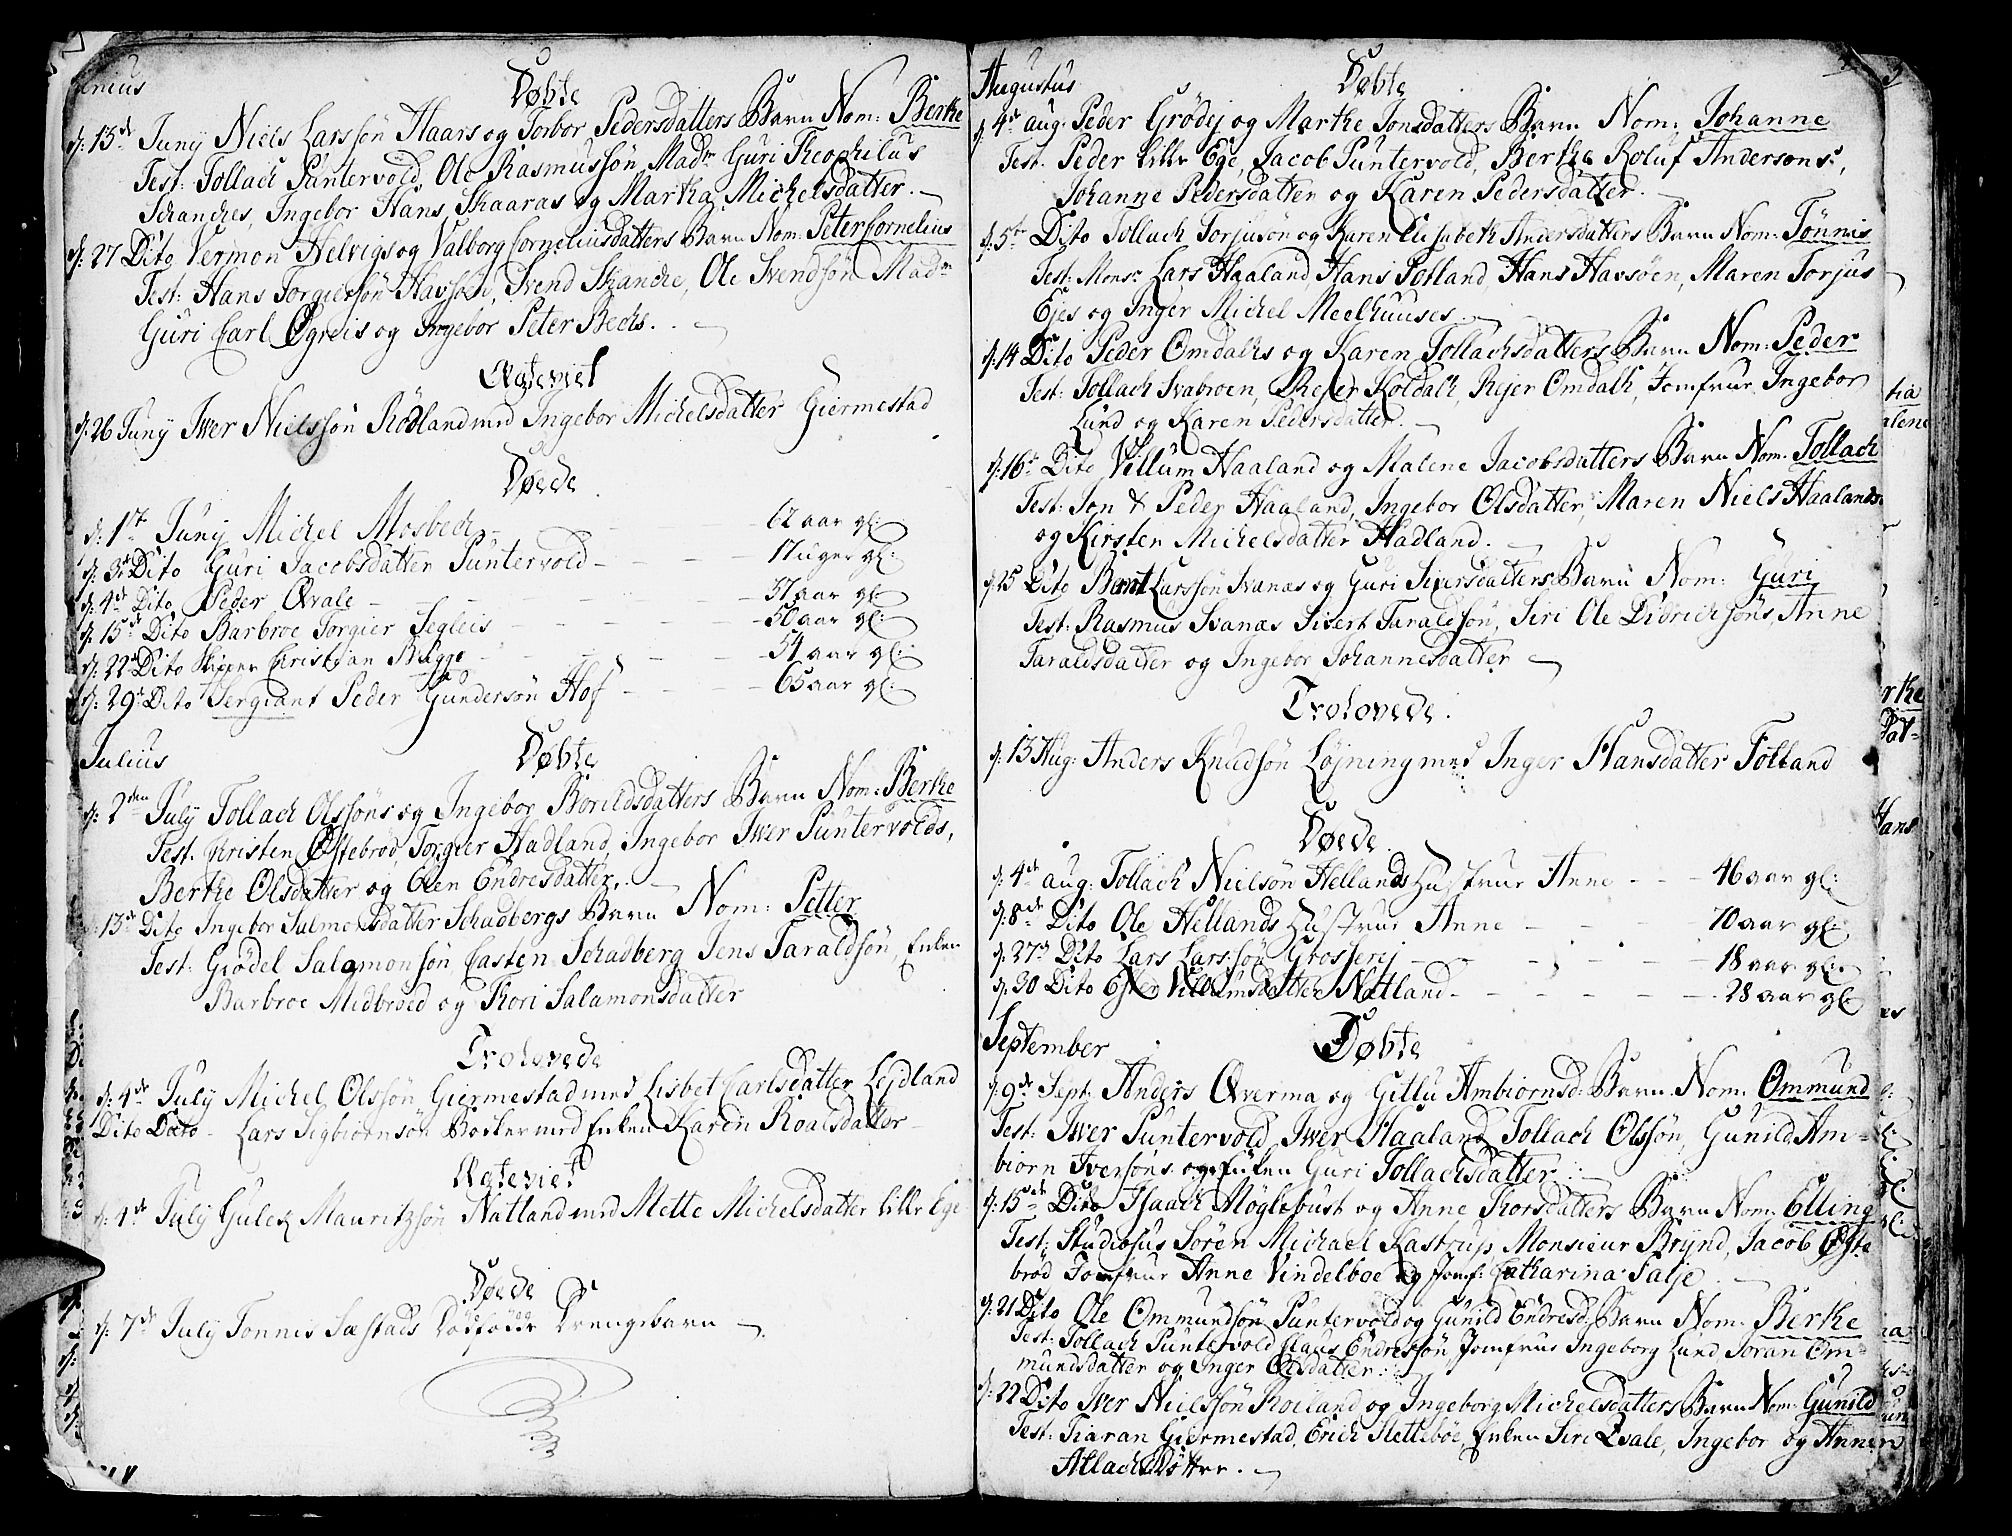 Junius
Døbte
d: 13de Juny Niels Larssøn Haars og Torbor Pedersdatters Barn Nom: Berthe
Test: Tollach Puntervold, Ole Rasmussøn Madm Guri Theophilus
Schanches, Ingebor Hans Skaaras og Martha Michelsdatter.
d: 27 Dito Vermon Helvigs og Valborg Corneliusdatters Barn Nom: Peter Cornelius
Test: Hans Torgiersøn Havsøen, Svend Skanche, Ole Svendsøn Madm
Guri Carl Øgreis og Ingebor Peter Bechs.
Ægteviet
d: 26 Juny Iver Nielssøn Rødland med Ingebor Michelsdatter Giermestad
Døede
d: 1ste Juny Michel Mosbech - 62 aar gl:
d: 3de Dito Guri Jacobsdatter Puntervold - 17 uger gl:
d: 4de Dito Peder Qvale - 37 aar gl:
d: 15de Dito Barbroe Torgier Segleis - 50 aar gl:
d: 22de Dito Skipper Christian Bugge - 54 aar gl:
d: 29de Dito Sergiant Peder Gundersøn Hof - 65 aar gl:
Julius
Døbte
d: 2den July Tollach Olssøns og Ingebor Borildsdatters Barn Nom: Berthe
Test. Kristen Østebrød, Torgier Hadland, Ingebor Iver Puntervolds,
Berthe Olsdatter og Elen Endresdatter.
13de Dito Ingebor Salmonsdatter Schadbergs Barn Nom: Petter
Test: Giødel Salomonsøn, Casten Schadberg Jens Taraldsøn, Enken
Barbroe Midbrøed og Thori Salamonsdatter
Trolovede
d: 4de July Michel Olssøn Giermestad med Lisbet Carlsdatter Lejdland
Dito Dato - Lars Sigbiørnsøn Bøcker med Enken Karen Roalsdatter
Ægteviet
d: 4de July Gulek Mauritzsøn Natland med Mette Michelsdatter lille Ege
Døede
d: 7de July Tønnis Sæstads Dødfødde Drengebarn
Augustus
Døbte
d: 4de aug: Peder Grødej og Marthe Jonsdatters Barn Nom: Johanne
Test: Peder lille Ege, Jacob Puntervold, Berthe Roluf Andersøns,
Johanne Pedersdatter og Karen Pedersdatter.
d: 5te Dito Tollach Torjusøn og Karen Elisabeth Andersdatters Barn Nom: Tønnis
Test: Monsr Lars Haaland, Hans Rotland, Hans Havsøen, Maren Torjus
Ejes og Inger Michel Meelhuuses.
d: 14 Dito Peder Omdahls og Karen Tollachsdatters Barn Nom: Peder
Test: Tollach Svabroen, Rejer Koldahl, Rejer Omdahl, Jomfrue Ingebor
Lund og Karen Pedersdatter.
d: 16de Dito Vellum Haaland og Malene Jacobsdatters Barn Nom: Tollach
Test: Jon & Peder Haaland, Ingebor Olsdatter, Maren Niels Haalands
og Kirsten Michelsdatter Hadland.
d: 25 Dito Bernt Larssøn Svanæs og Guri Siversdatters Barn Nom: Guri
Test: Rasmus Svanæs Sivert Taraldsøn, Siri Ole Didrichsøns, Anne
Taraldsdatter og Ingebor Johannesdatter
Trolovede.
d: 13 Aug: Anders Knudsøn Løjning med Inger Hansdatter Tolland
Døede.
d: 4de aug: Tollach Nielsøn Hellands Hustrue Anne - 46 aar gl:
d: 8de Dito Ole Hellands Hustrue Anne - 70 aar gl:
d: 27de Dito Lars Larssøn Grosserej - 18 aar gl:
d: 30 Dito Ester Villumsdatter Natland - 28 aar gl:
September
Døbte
d: 9de Sept: Anders Qverma og Gitlu Ambiørnsd: Barn Nom: Ommund
Test: Iver Puntervold, Iver Haaland, Tollach Olssøn, Gunild Am-
biørn Iversøns og Enken Guri Tollachsdatter.
d: 15de Dito Isaach Møglebust og Anne Thorsdatters Barn Nom: Elling
Test: Studiosus Søren Michael Kastrup, Monsieur Brynd, Jacob Øste
brød Jomfrue Anne Vindelboe og Jomf: Catharina Salje.
d: 21 Dito Ole Ommundsøn Puntervold og Gunild Endresd: Barn Nom: Berthe
Test: Tollach Puntervold Claus Endresøn Jomfrue Ingeborg Lund Søran Om-
mundsdatter og Inger Olsdatter.
d: 22 Dito Iver Nielssøn Roiland og Ingeborg Michelsdatters Barn Nom: Gunild
Test: Tiaran Giermestad, Erich Slettebøe, Enken Siri Qvale, Ingebor og Anne
Atlachs Døttre.